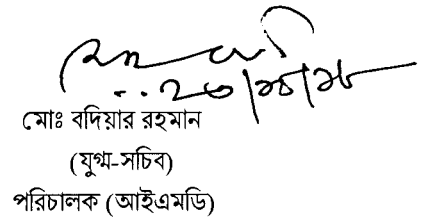 মোঃ বদিয়ার রহমান
(যুগ্ম-সচিব)
পরিচালক (আইএমডি)